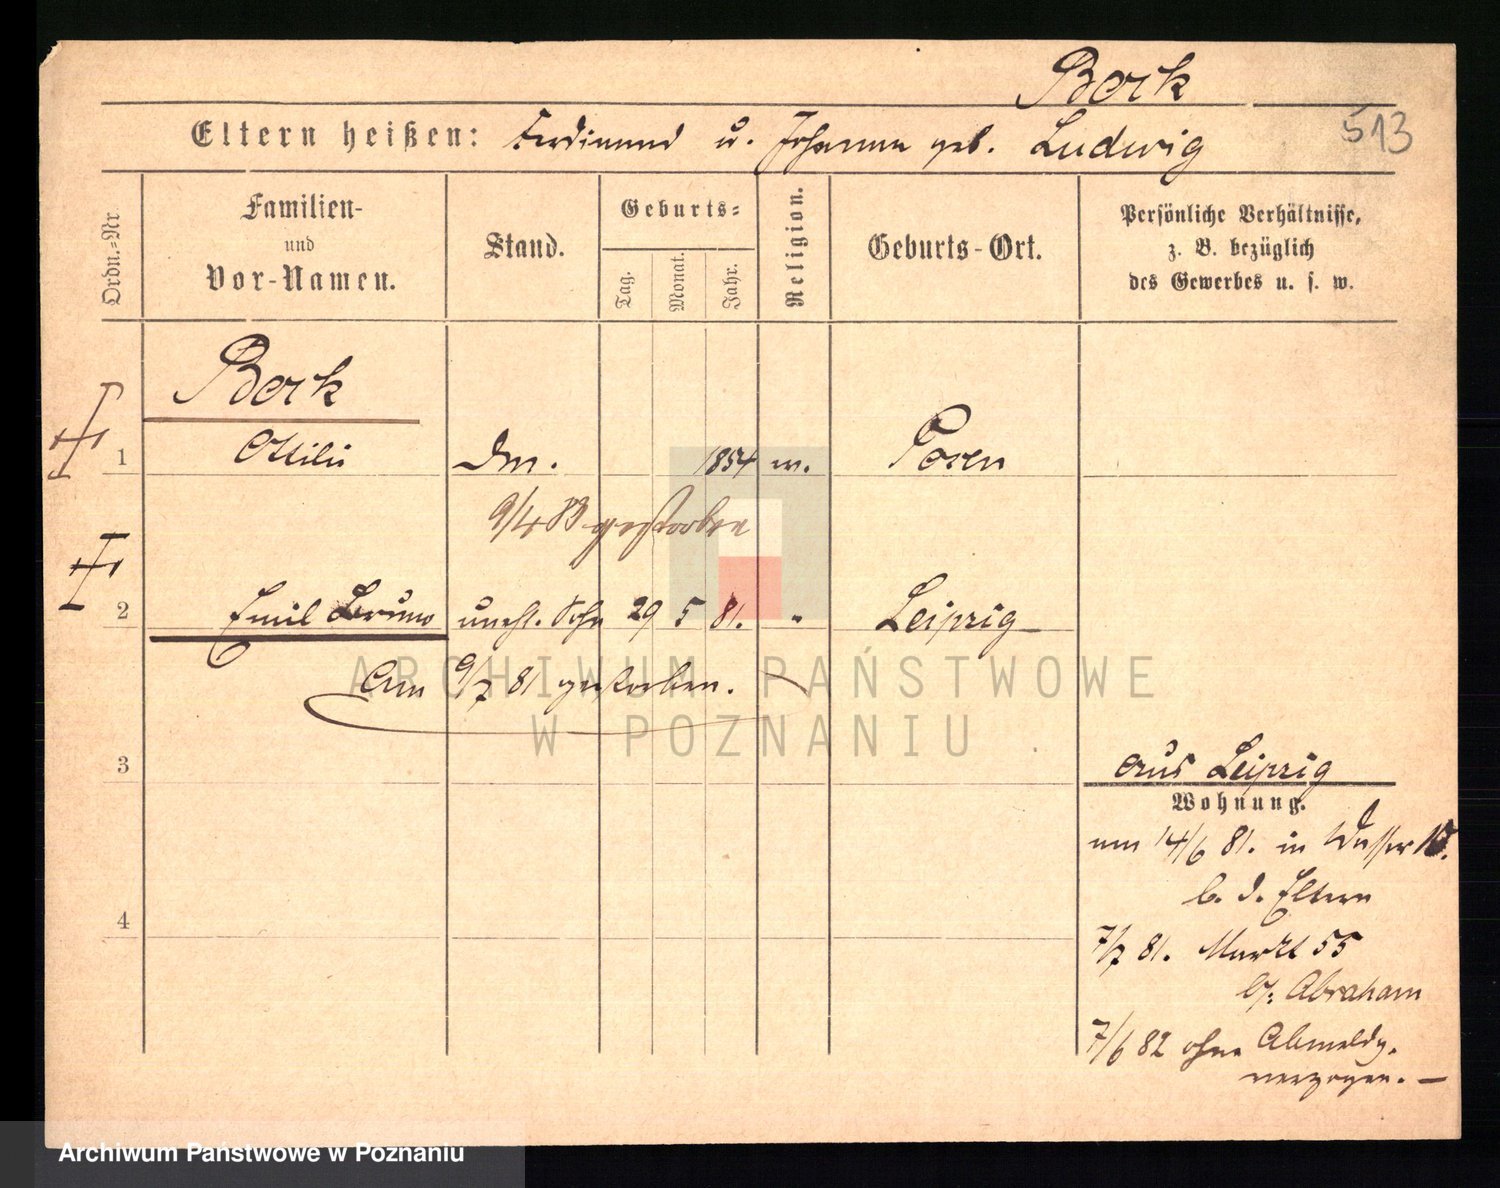 Bork
513
Eltern heißen: Ferdinand u. Johanna geb. Ludwig
Ordn.=Nr.
Familien-
und
Vor-Namen.
Stand.
Geburts=
Tag.
Monat.
Jahr.
Religion.
Geburts-Ort.
Persönliche Verhältnisse,
z. B. bezüglich
des Gewerbes u. s. w.
Bork
1 Ottilie 1854 Posen
9/4 83 gestorben
2 Emil Bruno unehl. Sohn 29 5 81. " Leipzig
Am 9/7 81 gestorben.
3
aus Leipzig
Wohnung.
14/6 81. in Wasser 10.
b. d. Eltern
4
7/7 81. Markt 55
b/: Abraham
7/6 82 ohne Abmeldg.
verzogen. —
ARCHIWUM PAŃSTWOWE
W POZNANIU
Archiwum Państwowe w Poznaniu